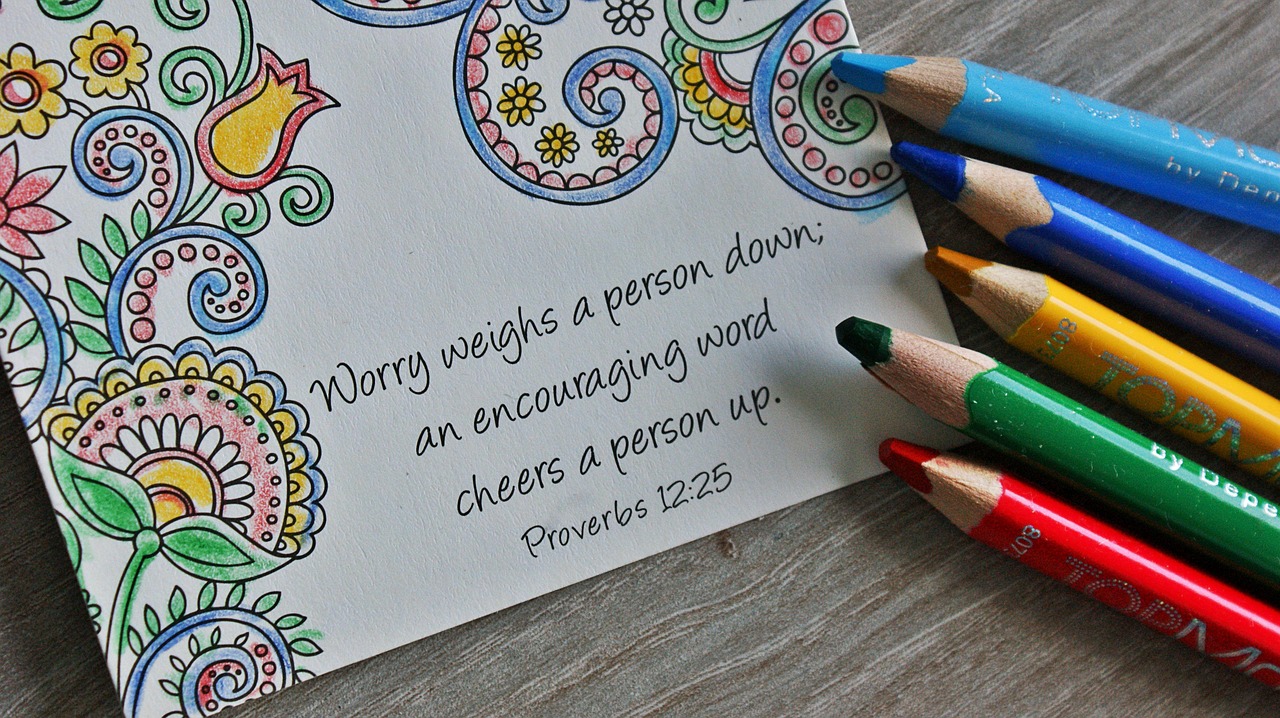 Worry weighs a person down;
an encouraging word
cheers a person up.
Proverbs 12:25
by Den
8077
TOPM
by Depe
TOPMO